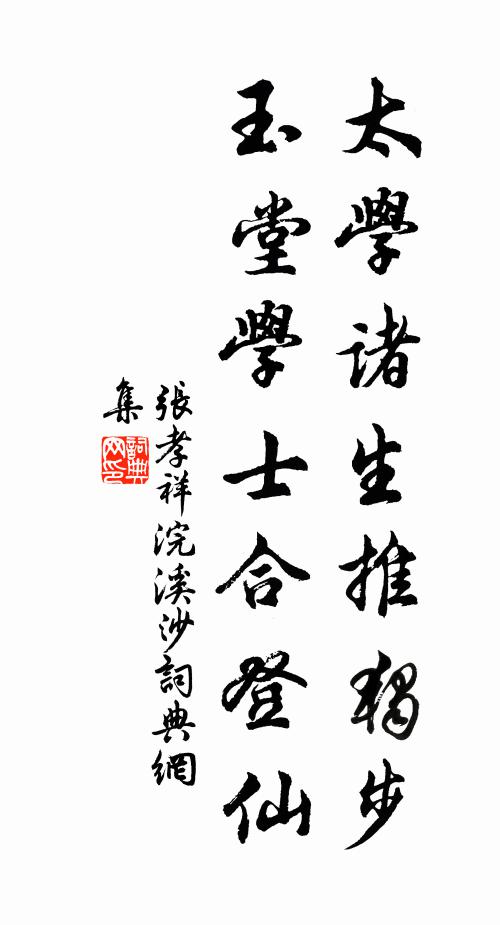 太學諸生推獨步
玉堂學士合登仙
張孝祥浣溪沙詞典網
集
詞典網印